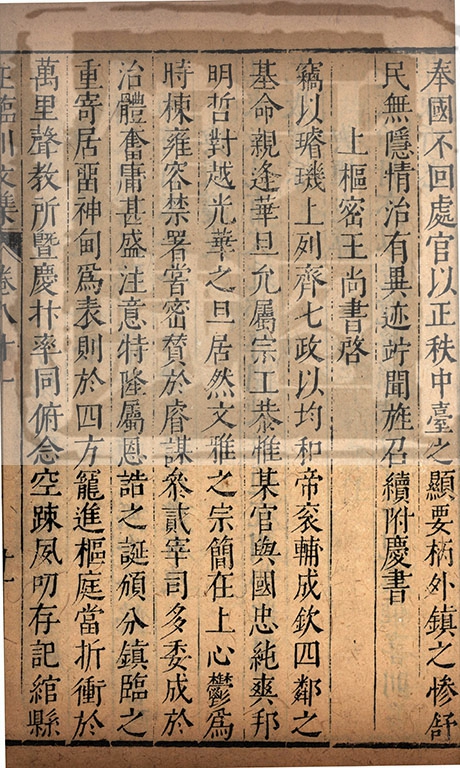 奉國不回處官以正秩中臺之顯要柄外鎮之慘舒
民無隱情治有異迹竚聞旌召續附慶書
上樞密王尚書啓
竊以璿璣上列齊七政以均和帝衮輔成欽四鄰之
基命親逢華旦允屬宗工恭惟某官與國忠純爽邦
明哲對越光華之旦居然文雅之宗簡在上心鬱爲
時棟雍容禁署嘗密賛於睿謀叅貳宰司多委成於
治體奮庸甚盛注意特隆屬恩誥之誕頒分鎮臨之
重寄居畱神甸爲表則於四方寵進樞庭當折衝於
萬里聲教所暨慶抃率同俯念空踈夙叨存記綰縣
王臨川文集 卷八十一 十一